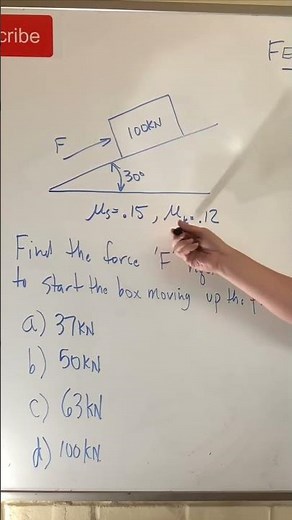 cribe
FE
100KN
F
30°
μs=.15, μk=.12
Find the force 'F'
to start the box moving up the
a) 37KN
b) 50KN
c) 63KN
d) 100KN